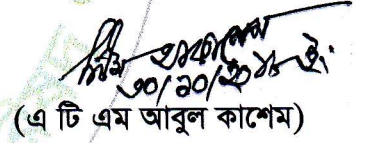 ৩০/১০/২০১৮ ইং
(এ টি এম আবুল কাশেম)